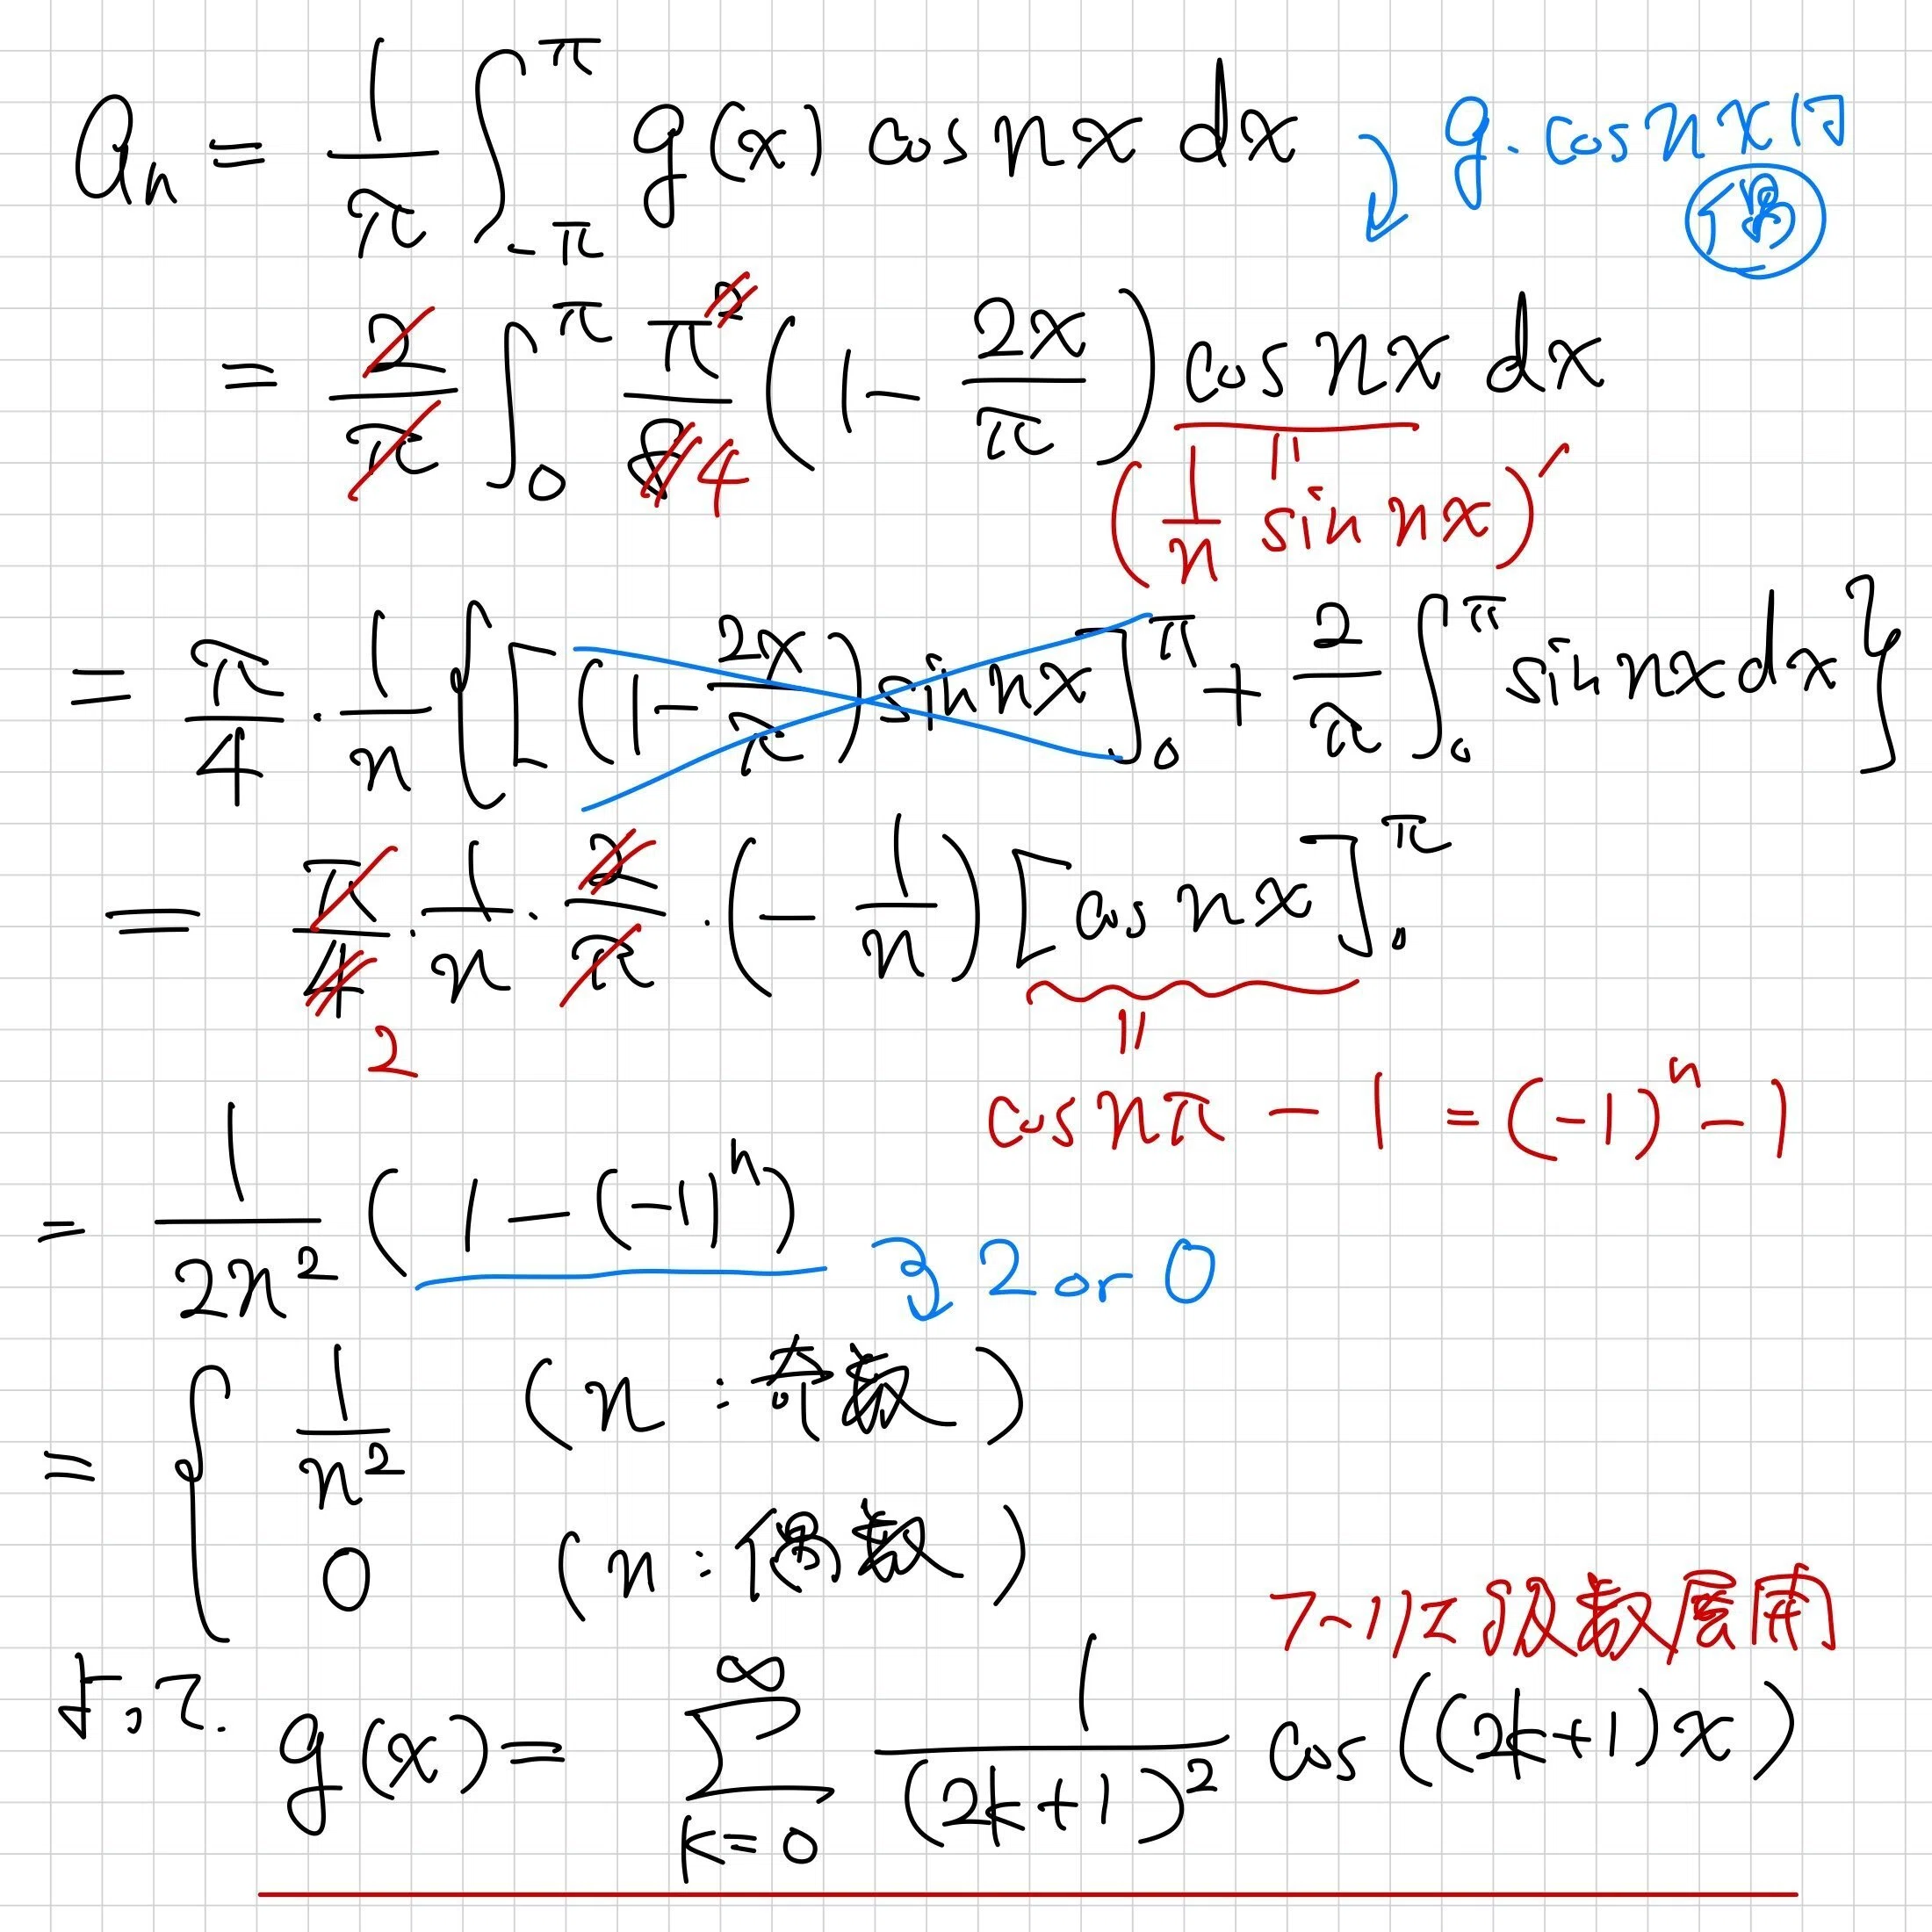 aₙ = 1/π ∫_{-π}^{π} g(x) cos nx dx ↓ g・cos nx は
偶
= 2/π ∫_0^π π²/8 4 (1 - 2x/π) cos nx dx
‖
(1/n sin nx)′
= π/4・1/n { [(1 - 2x/π) sin nx]_0^π + 2/π ∫_0^π sin nx dx }
= π/4・1/n・2/π・(-1/n) [cos nx]_0^π
2
‖
cos nπ - 1 = (-1)ⁿ - 1
= 1/(2n²) (1 - (-1)ⁿ) 2 or 0
= { 1/n² (n : 奇数)
0 (n : 偶数)
フーリエ級数展開
よって.
g(x) = Σ_{k=0}^{∞} 1/(2k+1)² cos((2k+1)x)